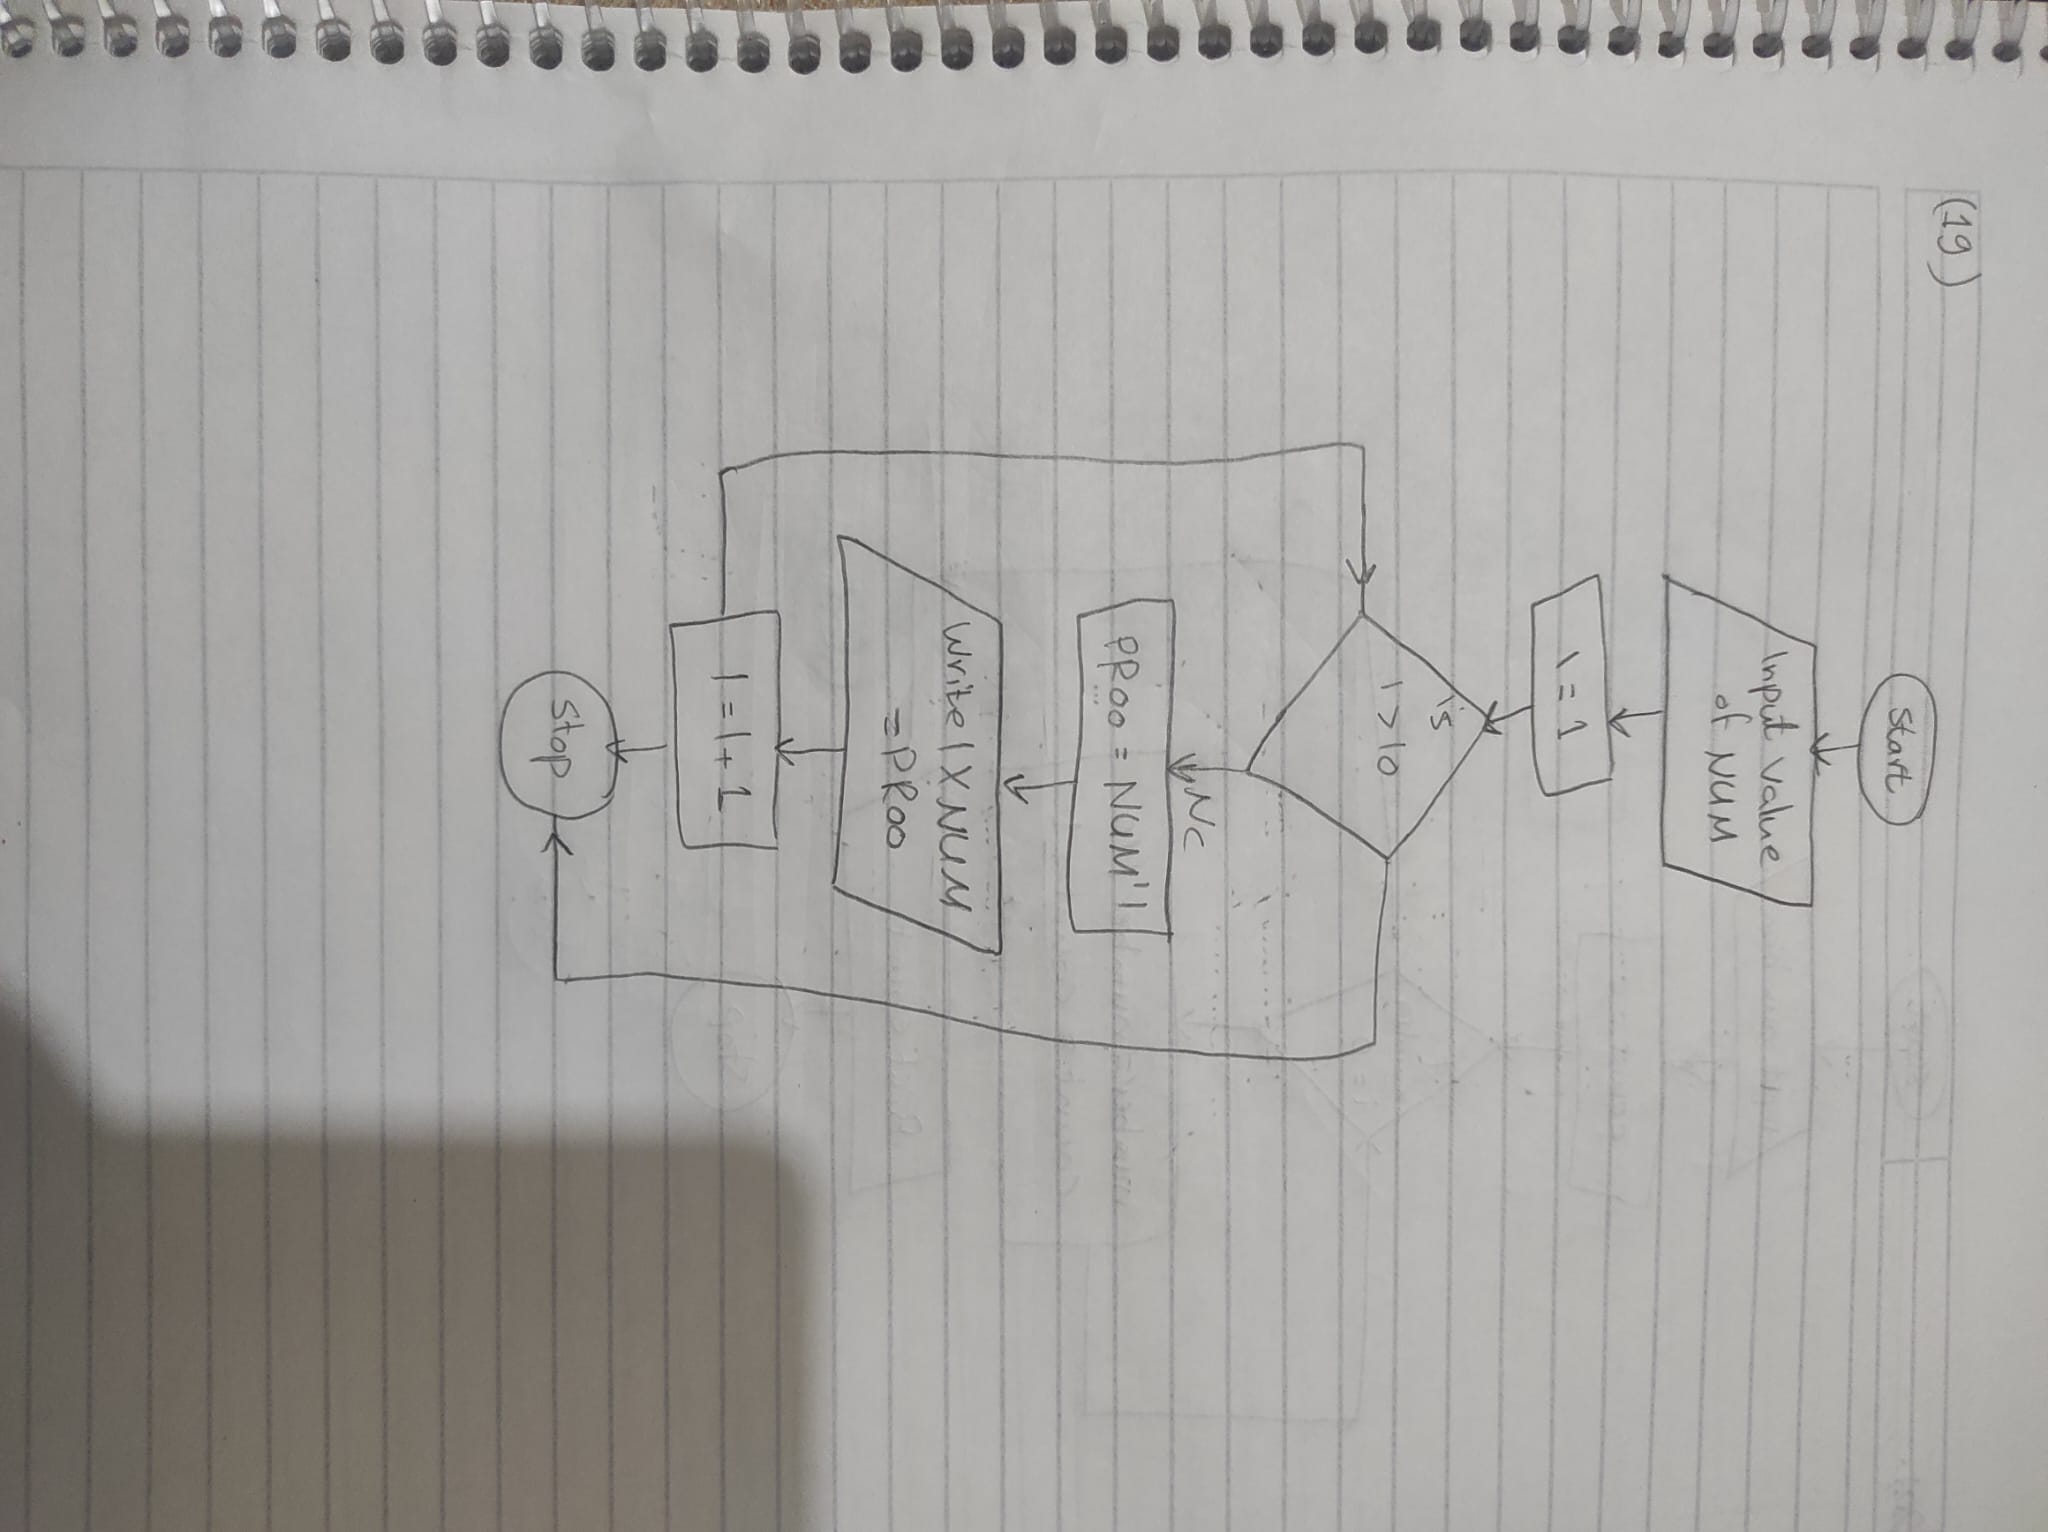 (19)
Start
Input value
of NUM
I = 1
is
I > 10
Nc
PROO = NUM'I
Write I X NUM
= PROO
I = I + 1
Stop